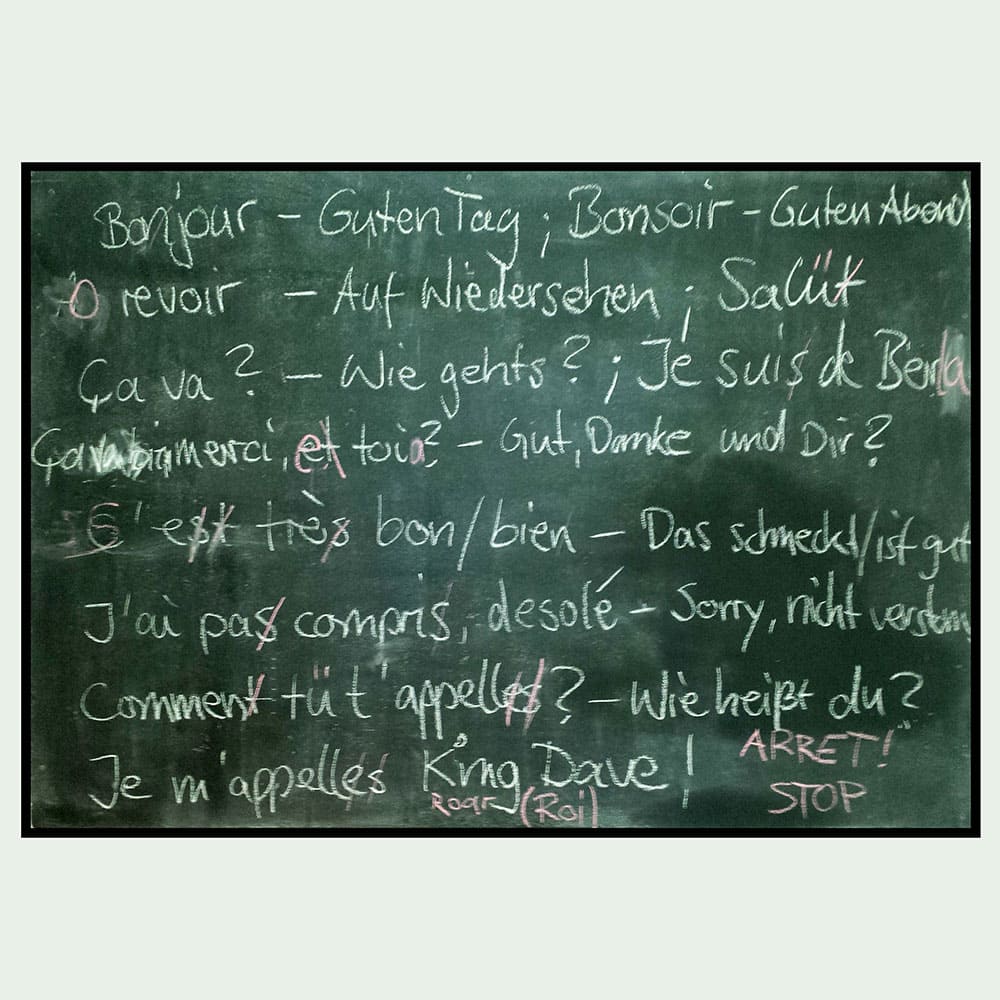 Bonjour – Guten Tag ; Bonsoir – Guten Abend
O revoir – Auf Wiedersehen ; Salüt
Ça va ? – Wie gehts ? ; Je suis de
Ça va bien merci, et toi ? – Gut, Danke und Dir ?
C'est très bon/bien – Das schmeckt/ist gut
J'ai pas compris, desolé – Sorry, nicht
Comment tü t'appelles ? – Wie heißt du ?
Je m'appelles King Dave !
ARRET!
Roar (Roi)
STOP